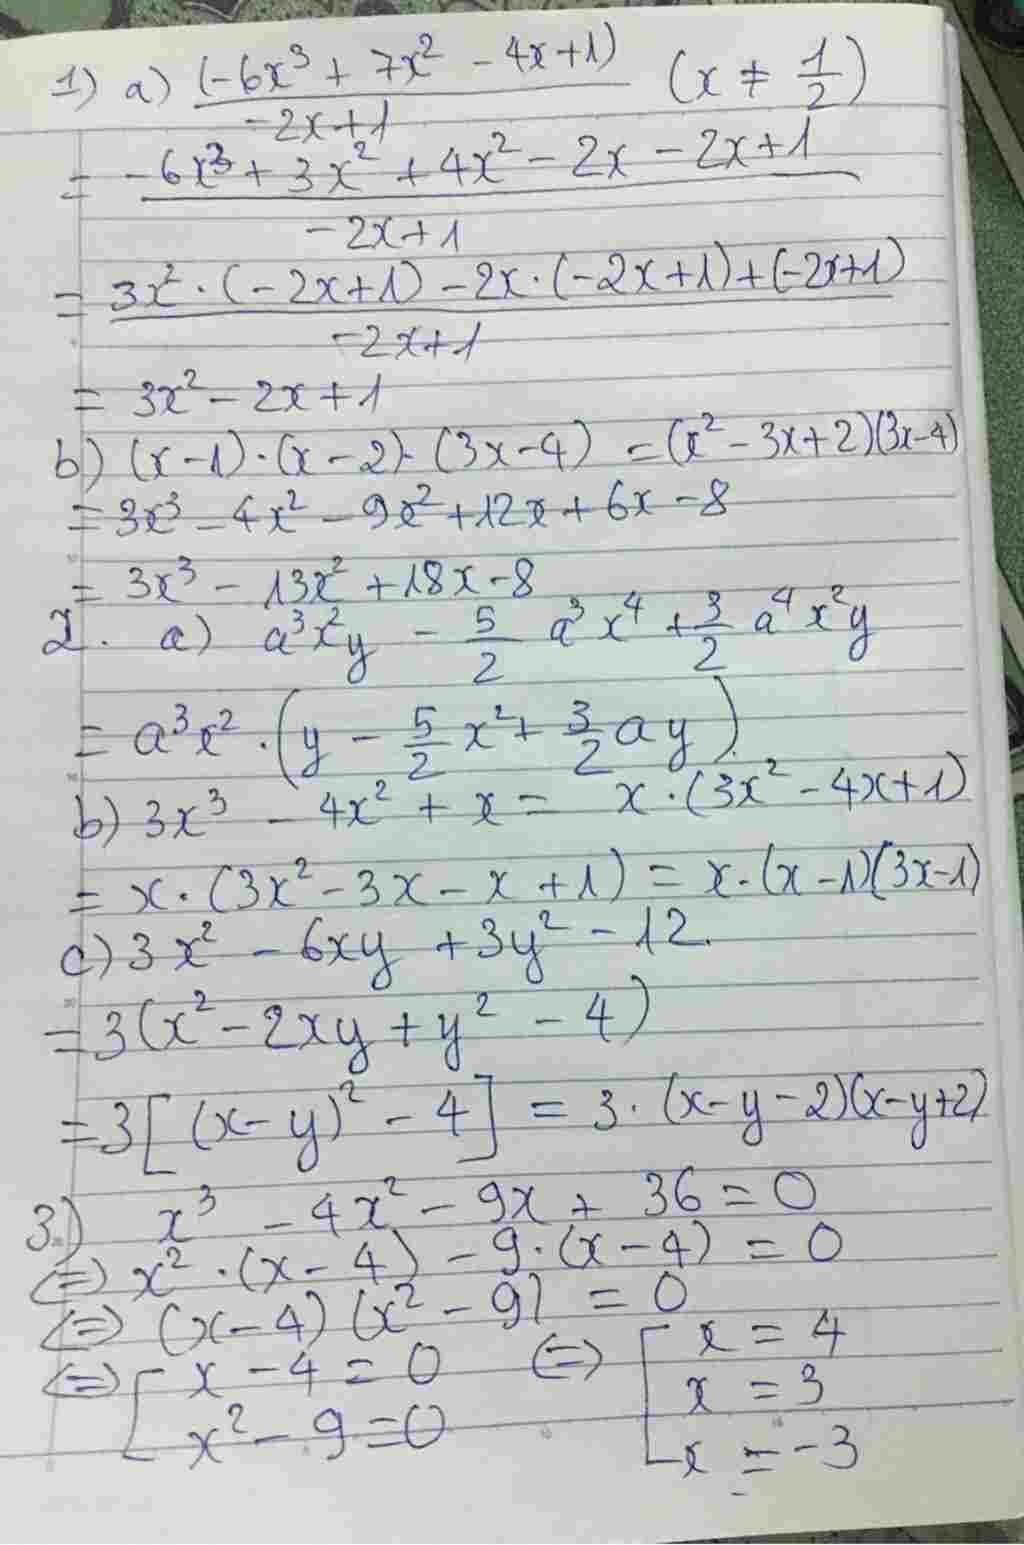 1) a) (-6x³ + 7x² - 4x + 1) / (-2x+1) (x ≠ 1/2)
= (-6x³ + 3x² + 4x² - 2x - 2x + 1) / (-2x+1)
= (3x² · (-2x+1) - 2x · (-2x+1) + (-2x+1)) / (-2x+1)
= 3x² - 2x + 1
b) (x-1) · (x-2) · (3x-4) = (x² - 3x + 2)(3x-4)
= 3x³ - 4x² - 9x² + 12x + 6x - 8
= 3x³ - 13x² + 18x - 8
2. a) a³x²y - 5/2 a³x⁴ + 3/2 a⁴x²y
= a³x² · (y - 5/2 x² + 3/2 ay)
b) 3x³ - 4x² + x = x · (3x² - 4x + 1)
= x · (3x² - 3x - x + 1) = x · (x-1)(3x-1)
c) 3x² - 6xy + 3y² - 12.
= 3(x² - 2xy + y² - 4)
= 3[(x-y)² - 4] = 3 · (x-y-2)(x-y+2)
3.) x³ - 4x² - 9x + 36 = 0
(=) x² · (x-4) - 9 · (x-4) = 0
(=) (x-4)(x² - 9) = 0
(=) [ x - 4 = 0 (=) [ x = 4
x² - 9 = 0 x = 3
x = -3